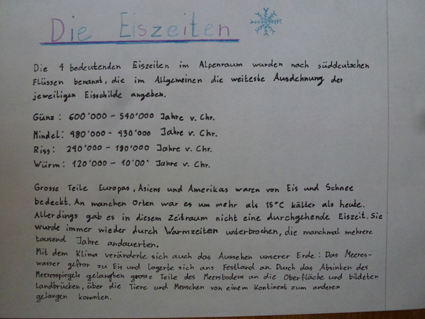 Die Eiszeiten
Die 4 bedeutenden Eiszeiten im Alpenraum wurden nach süddeutschen
Flüssen benannt, die im Allgemeinen die weiteste Ausdehnung der
jeweiligen Eisschilde angeben.
Günz: 600'000 - 540'000 Jahre v. Chr.
Mindel: 480'000 - 430'000 Jahre v. Chr.
Riss: 240'000 - 180'000 Jahre v. Chr.
Würm: 120'000 - 10'00' Jahre v. Chr.
Grosse Teile Europas, Asiens und Amerikas waren von Eis und Schnee
bedeckt. An manchen Orten war es um mehr als 15°C kälter als heute.
Allerdings gab es in diesem Zeitraum nicht eine durchgehende Eiszeit. Sie
wurde immer wieder durch Warmzeiten unterbrochen, die manchmal mehrere
tausend Jahre andauerten.
Mit dem Klima veränderte sich auch das Aussehen unserer Erde: Das Meeres-
wasser gefror zu Eis und lagerte sich ans Festland an. Durch das Absinken des
Meeresspiegels gelangten grosse Teile des Meerbodens an die Oberfläche und bildeten
Landbrücken, über die Tiere und Menschen von einem Kontinent zum anderen
gelangen konnten.